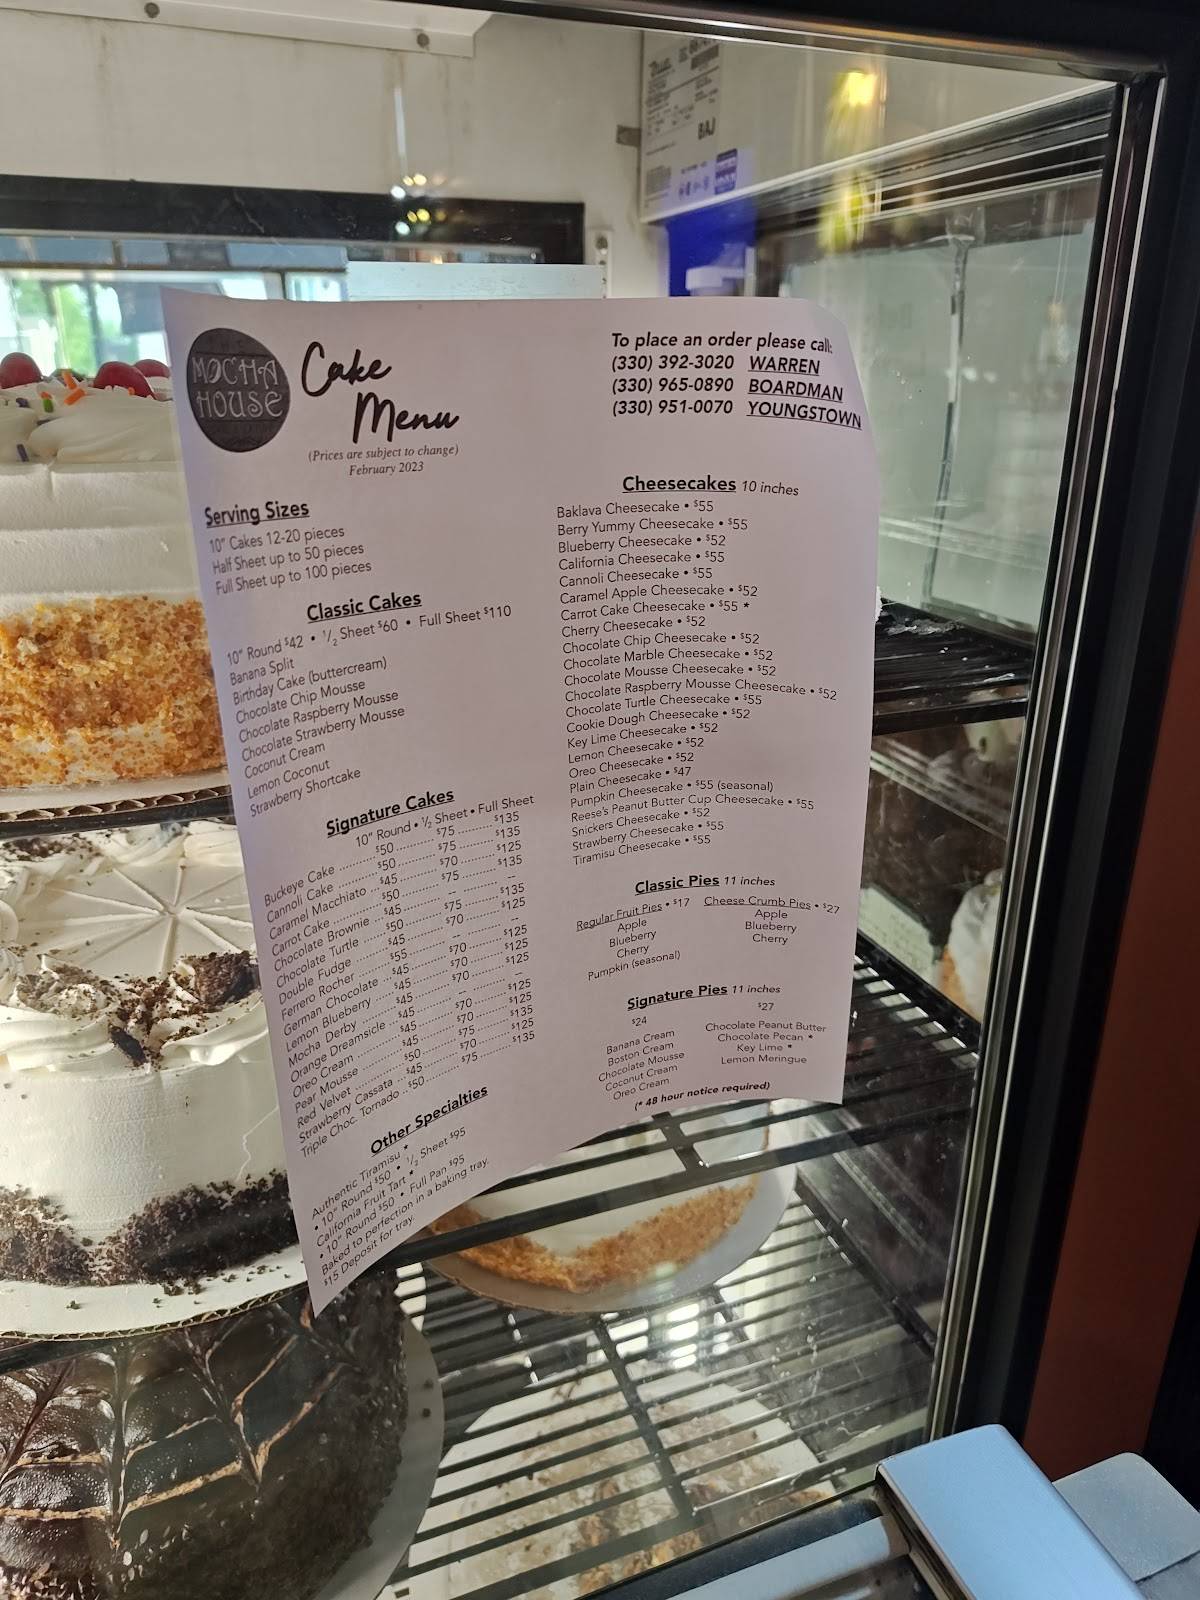 MOCHA
HOUSE
Cake
Menu
(Prices are subject to change)
February 2023
To place an order please call:
(330) 392-3020 WARREN
(330) 965-0890 BOARDMAN
(330) 951-0070 YOUNGSTOWN
Serving Sizes
10" Cakes 12-20 pieces
Half Sheet up to 50 pieces
Full Sheet up to 100 pieces
Classic Cakes
10" Round $42 • 1/2 Sheet $60 • Full Sheet $110
Banana Split
Birthday Cake (buttercream)
Chocolate Chip Mousse
Chocolate Raspberry Mousse
Chocolate Strawberry Mousse
Coconut Cream
Lemon Coconut
Strawberry Shortcake
Signature Cakes
10" Round • 1/2 Sheet • Full Sheet
Buckeye Cake ........... $50 ........... $75 ........... $135
Cannoli Cake ........... $50 ........... $75 ........... $135
Caramel Macchiato ... $45 ........... $70 ........... $125
Carrot Cake ........... $50 ........... $75 ........... $135
Chocolate Brownie ... $45 ........... -- ........... --
Chocolate Turtle ...... $50 ........... $75 ........... $135
Double Fudge ........... $45 ........... $70 ........... $125
Ferrero Rocher ........ $55 ........... -- ........... --
German Chocolate ... $45 ........... $70 ........... $125
Lemon Blueberry ...... $45 ........... $70 ........... $125
Mocha Derby ........... $45 ........... $70 ........... $125
Orange Dreamsicle ... $45 ........... -- ........... --
Oreo Cream ........... $45 ........... $70 ........... $125
Pear Mousse ........... $45 ........... $70 ........... $125
Red Velvet ........... $50 ........... $75 ........... $135
Strawberry Cassata ... $45 ........... $70 ........... $125
Triple Choc. Tornado .. $50 ........... $75 ........... $135
Other Specialties
Authentic Tiramisu *
• 10" Round $50 • 1/2 Sheet $95
California Fruit Tart *
• 10" Round $50 • Full Pan $95
Baked to perfection in a baking tray.
$15 Deposit for tray.
Cheesecakes 10 inches
Baklava Cheesecake • $55
Berry Yummy Cheesecake • $55
Blueberry Cheesecake • $52
California Cheesecake • $55
Cannoli Cheesecake • $55
Caramel Apple Cheesecake • $52
Carrot Cake Cheesecake • $55 *
Cherry Cheesecake • $52
Chocolate Chip Cheesecake • $52
Chocolate Marble Cheesecake • $52
Chocolate Mousse Cheesecake • $52
Chocolate Raspberry Mousse Cheesecake • $52
Chocolate Turtle Cheesecake • $55
Cookie Dough Cheesecake • $52
Key Lime Cheesecake • $52
Lemon Cheesecake • $52
Oreo Cheesecake • $52
Plain Cheesecake • $47
Pumpkin Cheesecake • $55 (seasonal)
Reese's Peanut Butter Cup Cheesecake • $55
Snickers Cheesecake • $52
Strawberry Cheesecake • $55
Tiramisu Cheesecake • $55
Classic Pies 11 inches
Regular Fruit Pies • $17
Apple
Blueberry
Cherry
Pumpkin (seasonal)
Cheese Crumb Pies • $27
Apple
Blueberry
Cherry
Signature Pies 11 inches
$24
Banana Cream
Boston Cream
Chocolate Mousse
Coconut Cream
Oreo Cream
$27
Chocolate Peanut Butter
Chocolate Pecan *
Key Lime *
Lemon Meringue
(* 48 hour notice required)
True
BAJ